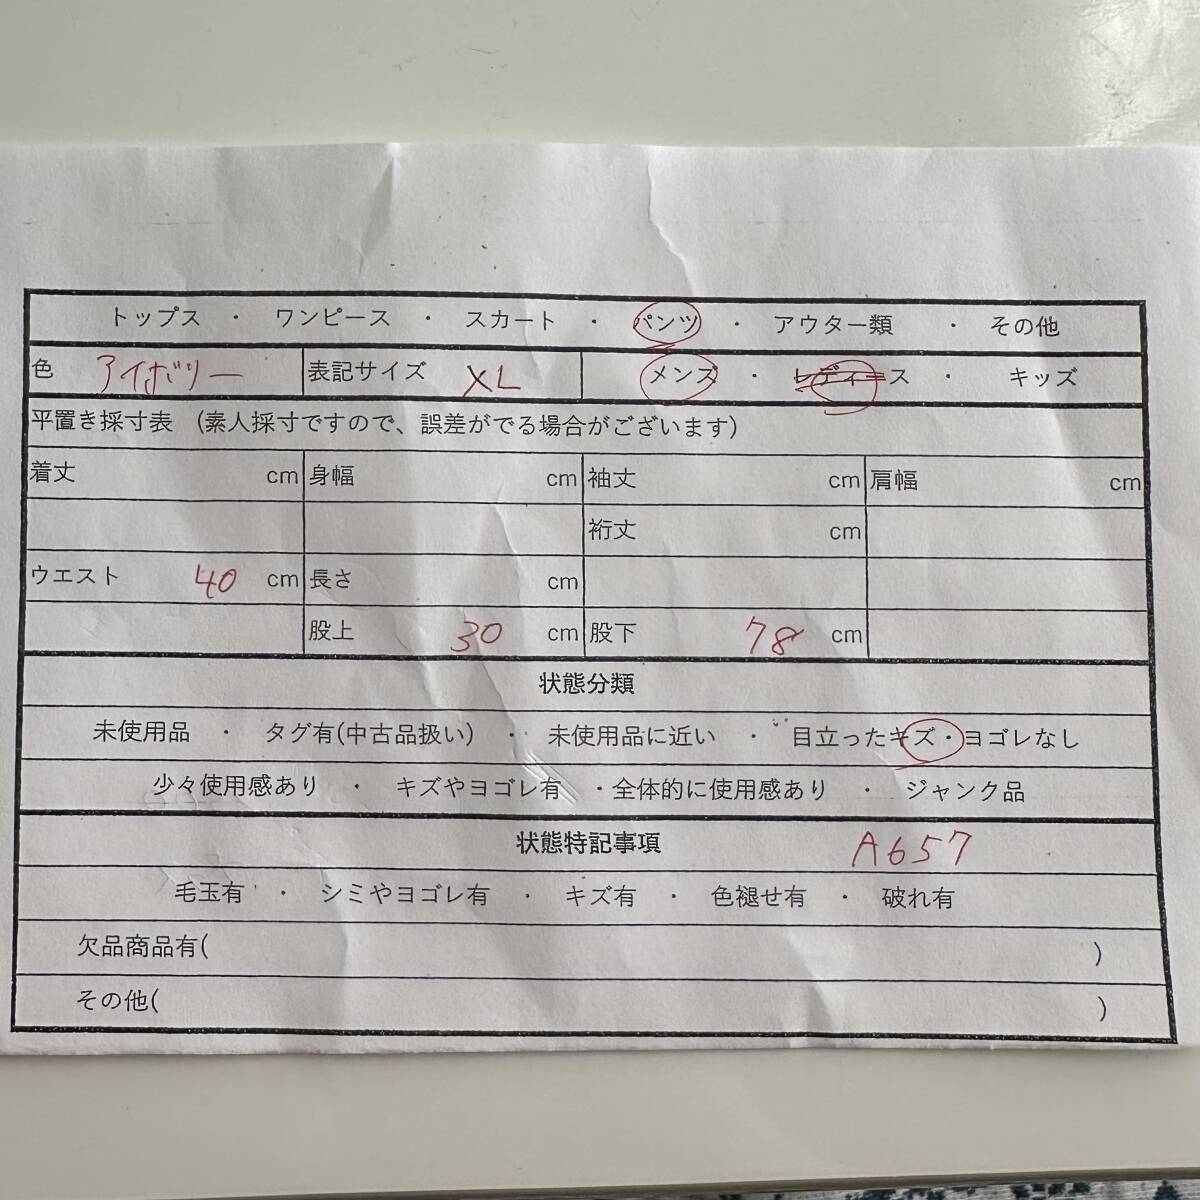 トップス ・ ワンピース ・ スカート ・ パンツ ・ アウター類 ・ その他
色 アイボリー 表記サイズ XL メンズ ・ レディース ・ キッズ
平置き採寸表 (素人採寸ですので、誤差がでる場合がございます)
着丈 cm 身幅 cm 袖丈 cm 肩幅 cm
裄丈 cm
ウエスト 40 cm 長さ cm
股上 30 cm 股下 78 cm
状態分類
未使用品 ・ タグ有(中古品扱い) ・ 未使用品に近い ・ 目立ったキズ・ヨゴレなし
少々使用感あり ・ キズやヨゴレ有 ・全体的に使用感あり ・ ジャンク品
状態特記事項 A657
毛玉有 ・ シミやヨゴレ有 ・ キズ有 ・ 色褪せ有 ・ 破れ有
欠品商品有( )
その他( )